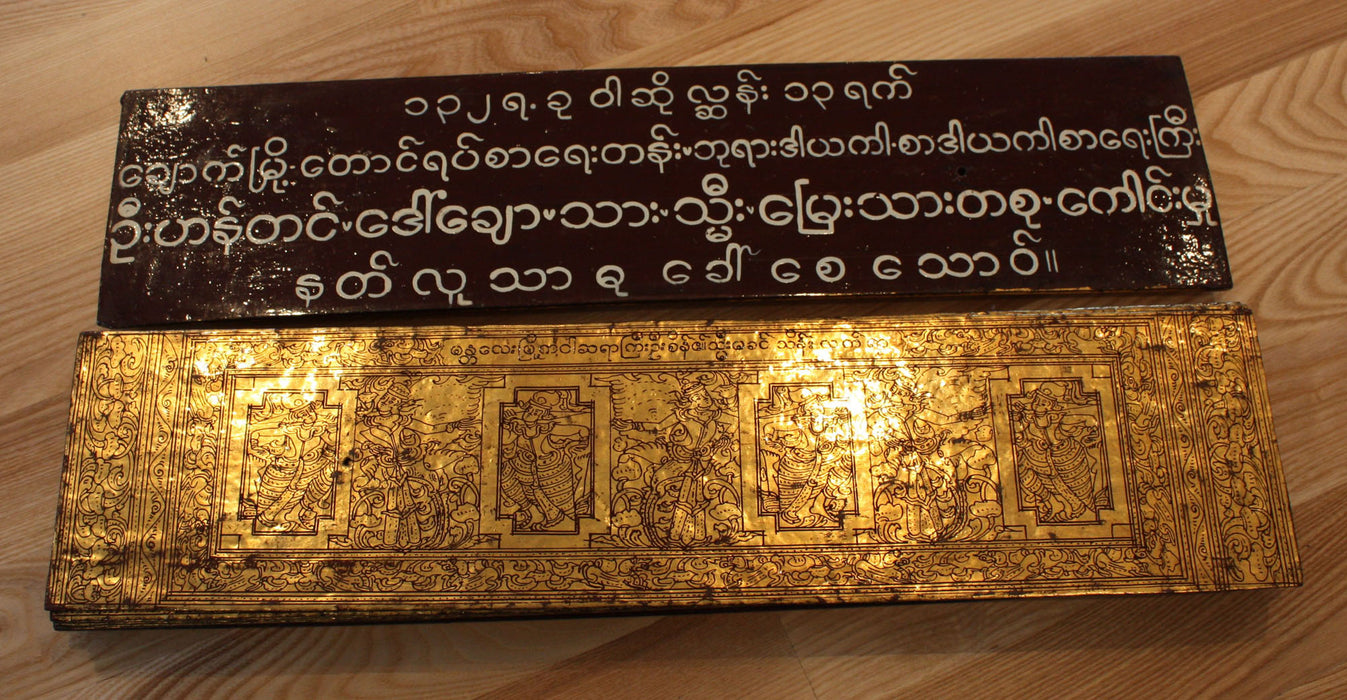 ၁၃၂၅ ခု ဝါဆို လ္ဆန်း ၁၃ ရက်
ချောက်မြို့ တောင်ရပ်စာရေးတန်း ဘုရားဒါယကါ စာဒါယကါစာရေးကြီး
ဦးဟန်တင် ဒေါ်ချော သား သ္မီး မြေးသားတစု ကောင်းမှု
နတ်လူသာဓု ခေါ်စေသောဝ်။